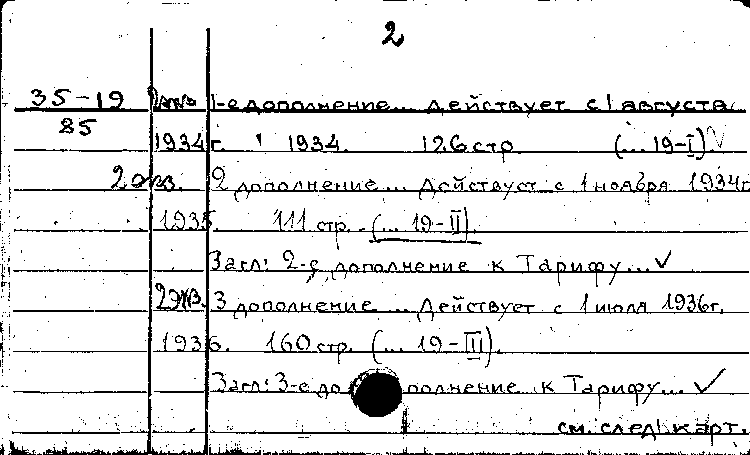 2
35-19 2 экз 1-е дополнение... Действует с 1 августа
85
1934 г. 1934. 126 стр (... 19-I)
2 экз. 2 дополнение... Действует с 1 ноября 1934 г
1935. 111 стр. (... 19-II).
Загл: 2-е дополнение к Тарифу...✓
2 экз. 3 дополнение... Действует с 1 июля 1936 г.
1936. 160 стр. (... 19-III).
Загл: 3-е до полнение к Тарифу...✓
см. след. карт.